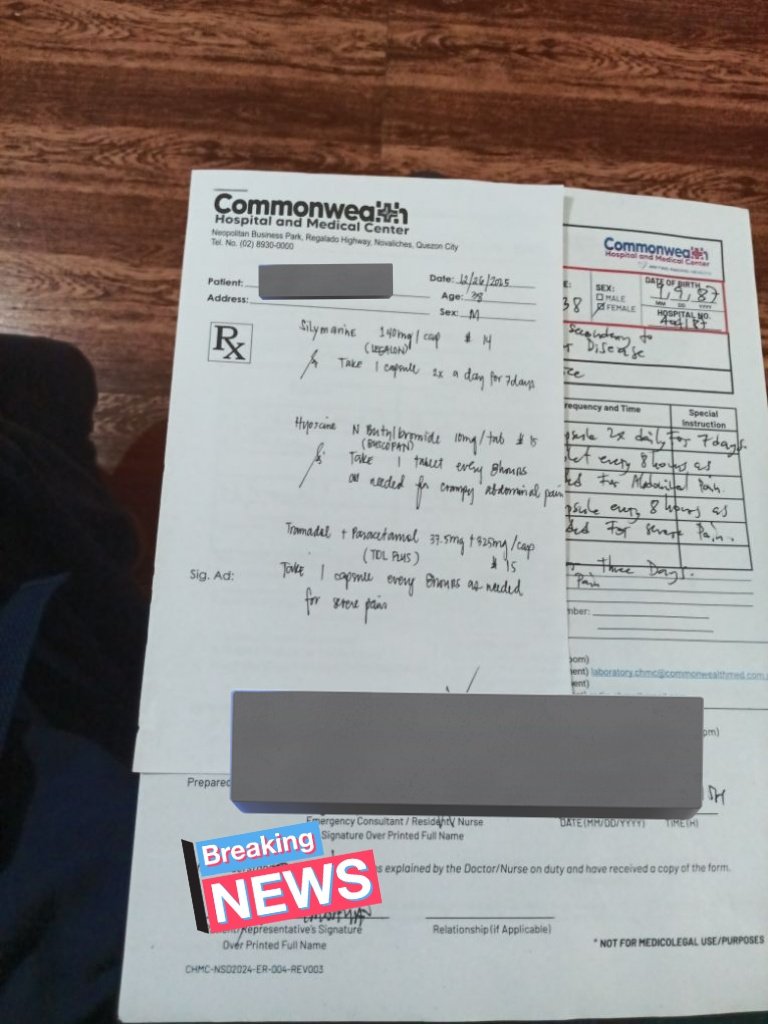 Commonwealth
Hospital and Medical Center
Neopolitan Business Park, Regalado Highway, Novaliches, Quezon City
Tel. No. (02) 8930-0000
Patient:
Date: 12/26/2025
Address:
Age: 38
Sex: M
Rx
Silymarine 140mg/cap # 14
(LEGALON)
Take 1 capsule 2x a day for 7days
Hyoscine N Butylbromide 10mg/tab # 15
(BUSCOPAN)
Take 1 tablet every 8hours
as needed for crampy abdominal pain
Tramadol + Paracetamol 37.5mg + 325mg/cap
(TDL PLUS) # 15
Sig. Ad:
Take 1 capsule every 8hours as needed
for severe pain
Commonwealth
Hospital and Medical Center
E:
38
SEX:
MALE
FEMALE
DATE OF BIRTH
9, 87
MM DD YYYY
HOSPITAL NO.
Secondary to
Disease
requency and Time
Special
Instruction
psule 2x daily For 7 days.
let every 8 hours as
ded For Abdominal Pain.
psule every 8 hours as
ded For severe Pain.
Three Days.
Pain
mber:
oom)
ment) laboratory.chmc@commonwealthmed.com.
ent)
pm)
Prepared
Emergency Consultant / Resident / Nurse
Signature Over Printed Full Name
DATE (MM/DD/YYYY)
TIME(H)
Breaking
NEWS
as explained by the Doctor/Nurse on duty and have received a copy of the form.
ent/Representative's Signature
Over Printed Full Name
Relationship (if Applicable)
* NOT FOR MEDICOLEGAL USE/PURPOSES
CHMC-NSD2024-ER-004-REV003